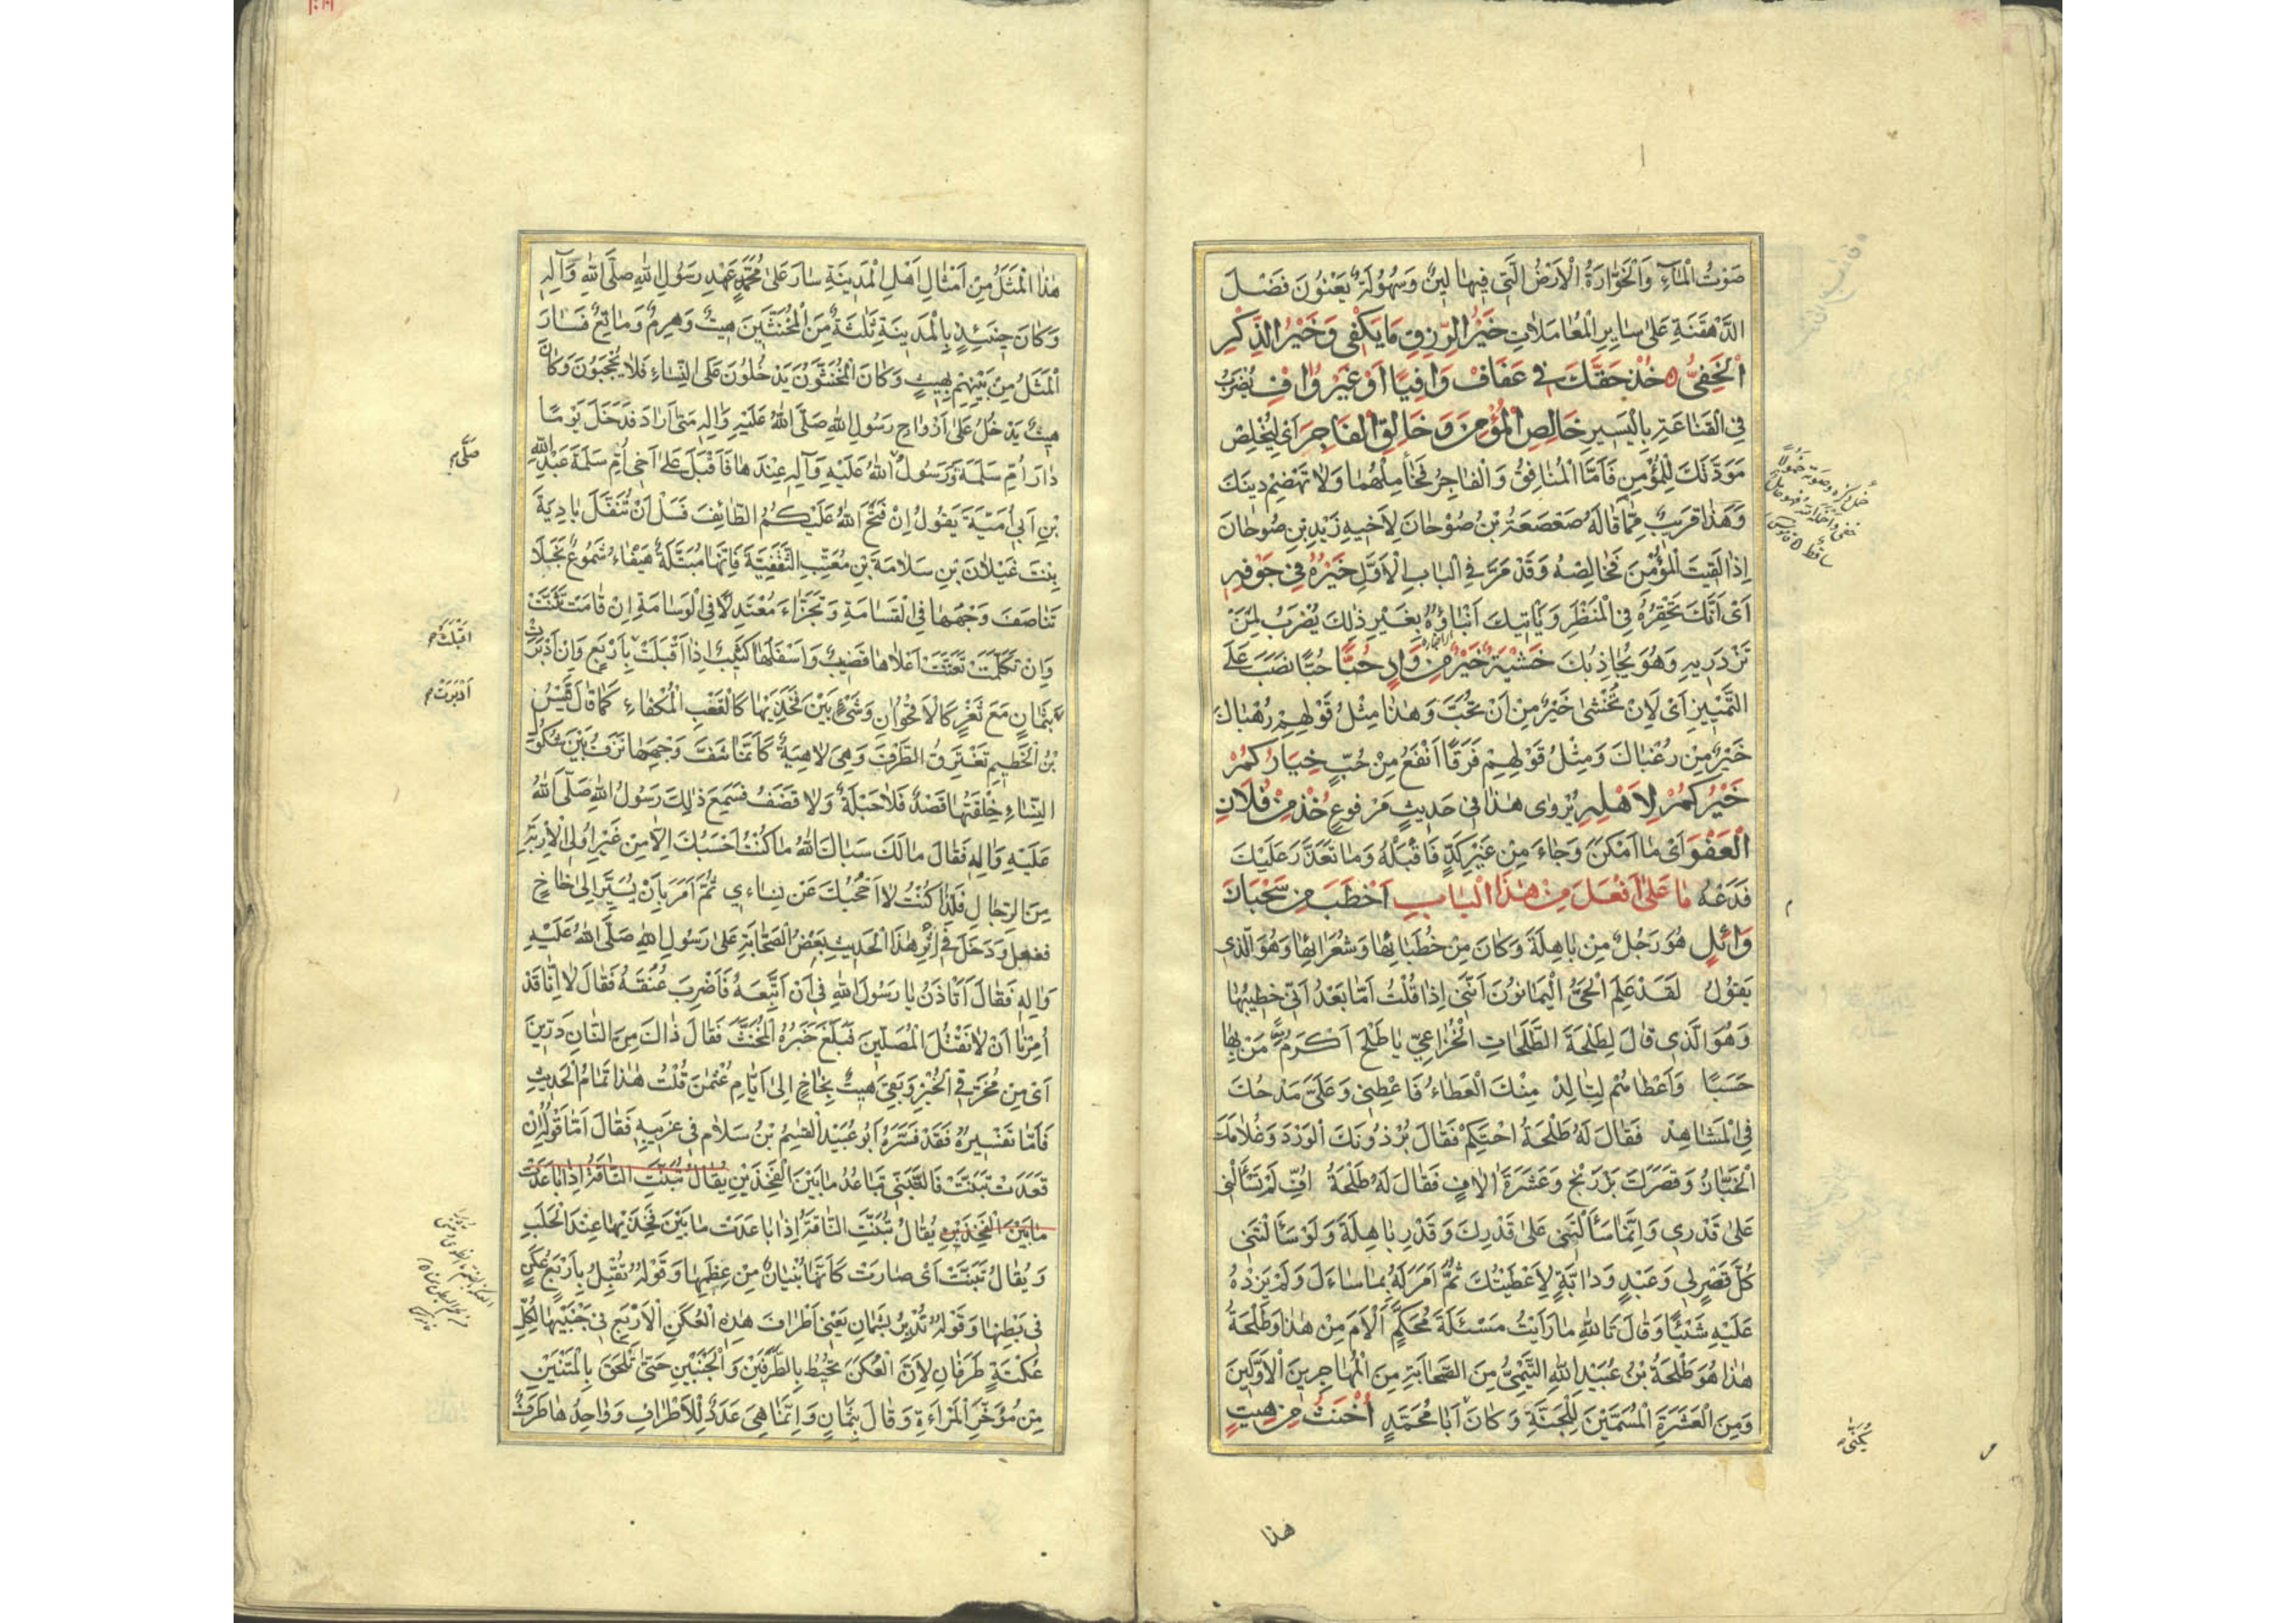 صَوْتُ الْمَاءِ وَالْخَوَّارَةُ الْاَرْضُ الَّتِي فِيهَا لِينٌ وَسُهُولَةٌ يَعْنُونَ فَضْلَ
الدَّهْقَنَةِ عَلَى سَايِرِ الْمُعَامَلَاتِ خَيْرُ الرِّزْقِ مَا يَكْفِي وَخَيْرُ الذِّكْرِ
الْخَفِيُّ خُذْ حَقَّكَ فِي عَفَافٍ وَافِيًا اَوْ غَيْرَ وَافٍ يُضْرَبُ
فِي الْقَنَاعَةِ بِالْيَسِيرِ خَالِصِ الْمُؤْمِنَ وَخَالِقِ الْفَاجِرَ اَيْ لِتُخْلِصْ
مَوَدَّتَكَ لِلْمُؤْمِنِ فَاَمَّا الْمُنَافِقُ وَالْفَاجِرُ فَجَامِلْهُمَا وَلَا تَهْضِمْ دِينَكَ
وَهَذَا قَرِيبٌ مِمَّا قَالَهُ صَعْصَعَةُ بْنُ صُوْحَانَ لِاَخِيهِ زَيْدِ بْنِ صُوحَانَ
اِذَا لَقِيتَ الْمُؤْمِنَ فَخَالِصْهُ وَقَدْ مَرَّ فِي الْبَابِ الْاَوَّلِ خَيْرُهُ فِي جَوْفِهِ
اَيْ اَنَّكَ تَحْقِرُهُ فِي الْمَنْظَرِ وَيَاْتِيكَ اَنْبَاؤُهُ بِغَيْرِ ذَلِكَ يُضْرَبُ لِمَنْ
تَزْدَرِيهِ وَهُوَ يُجَاذِبُكَ خَشْيَةٌ خَيْرٌ مِنْ وَادٍ حُبًّا حُبًّا نَصَبَ عَلَى
التَّمْيِيزِ اَيْ لَاِنْ تُخْشَى خَيْرٌ مِنْ اَنْ تُحَبَّ وَهَذَا مِثْلُ قَوْلِهِمْ رُهْبَاكَ
خَيْرٌ مِنْ رُغْبَاكَ وَمِثْلُ قَوْلِهِمْ فَرَقًا اَنْفَعُ مِنْ حُبٍّ خِيَارُكُمْ
خَيْرُكُمْ لِاَهْلِهِ يُرْوَى هَذَا فِي حَدِيثٍ مَرْفُوعٍ خُذْ مِنْ فُلَانٍ
الْعَفْوَ اَيْ مَا اَمْكَنَ وَجَاءَ مِنْ غَيْرِ كَدٍّ فَاقْبَلْهُ وَمَا تَعَذَّرَ عَلَيْكَ
فَدَعْهُ مَا عَلَى اَفْعَلَ مِنْ هَذَا الْبَابِ اَخْطَبَ مِنْ سَحْبَانَ
وَائِلٍ هُوَ رَجُلٌ مِنْ بَاهِلَةَ وَكَانَ مِنْ خُطَبَائِهَا وَشُعَرَائِهَا وَهُوَ الَّذِي
يَقُولُ لَقَدْ عَلِمَ الْحَيُّ الْيَمَانُونَ اَنَّنِي اِذَا قُلْتُ اَمَّا بَعْدُ اَنِّي خَطِيبُهَا
وَهُوَ الَّذِي قَالَ لِطَلْحَةَ الطَّلَحَاتِ الْخُزَاعِيِّ يَا طَلْحَ اَكْرَمَ مَنْ بِهَا
حَسَبًا وَاَعْطَاهُمْ لِتَالِدْ مِنْكَ الْعَطَاءُ فَاَعْطِنِي وَعَلَيَّ مَدْحُكَ
فِي الْمَشَاهِدْ فَقَالَ لَهُ طَلْحَةُ احْتَكِمْ فَقَالَ بُرْذُونَكَ الْوَرْدَ وَغُلَامَكَ
الْخَبَّازَ وَقَصْرَكَ بِزَرَنْجَ وَعَشَرَةَ اٰلَافٍ فَقَالَ لَهُ طَلْحَةُ اُفٍّ لَمْ تَسْاَلْنِي
عَلَى قَدْرِي وَاِنَّمَا سَاَلْتَنِي عَلَى قَدْرِكَ وَقَدْرِ بَاهِلَةَ وَلَوْ سَاَلْتَنِي
كُلَّ قَصْرٍ لِي وَعَبْدٍ وَدَابَّةٍ لَاَعْطَيْتُكَ ثُمَّ اَمَرَ لَهُ بِمَا سَاءَلَ وَلَمْ يَزِدْهُ
عَلَيْهِ شَيْئًا وَقَالَ تَاللهِ مَا رَاَيْتُ مَسْئَلَةَ مُحَكَّمٍ اَلْاَمَ مِنْ هَذَا وَطَلْحَةُ
هَذَا هُوَ طَلْحَةُ بْنُ عُبَيْدِ اللهِ التَّيْمِيُّ مِنَ الصَّحَابَةِ مِنَ الْمُهَاجِرِينَ الْاَوَّلِينَ
وَمِنَ الْعَشَرَةِ الْمُسَمَّيْنَ لِلْجَنَّةِ وَكَانَ اَبَا مُحَمَّدٍ اَخْنَثُ مِنْ هِيتٍ
يُكَنَّى
هذا
هَذَا الْمَثَلُ مِنْ اَمْثَالِ اَهْلِ الْمَدِينَةِ سَارَ عَلَى مُحَمَّدٍ عَهْدِ رَسُولِ اللهِ صَلَّى اللهُ وَآلِهِ
وَكَانَ حِينَئِذٍ بِالْمَدِينَةِ ثَلَثَةٌ مِنَ الْمُخَنَّثِينَ هِيتٌ وَهِرِمٌ وَمَاتِعٌ فَسَارَ
الْمَثَلُ مِنْ بَيْنِهِمْ بِهِيتٍ وَكَانَ الْمُخَنَّثُونَ يَدْخُلُونَ عَلَى النِّسَاءِ فَلَا يُحْجَبُونَ وَكَانَ
هِيتٌ يَدْخُلُ عَلَى اَزْوَاجِ رَسُولِ اللهِ صَلَّى اللهُ عَلَيْهِ وَاٰلِهِ مَتَى اَرَادَ فَدَخَلَ يَوْمًا
دَارَ اُمِّ سَلَمَةَ وَرَسُولُ اللهُ عَلَيْهِ وَآلِهِ عِنْدَهَا فَاَقْبَلَ عَلَى اَخِي اُمِّ سَلَمَةَ عَبْدِ اللهِ
بْنِ اَبِي اُمَيَّةَ يَقُولُ اِنْ فَتَحَ اللهُ عَلَيْكُمُ الطَّائِفَ فَسَلْ اَنْ تُنَفَّلَ بَادِيَةَ
بِنْتَ غَيْلَانَ بْنِ سَلَامَةَ بْنِ مُعَتِّبِ الثَّقَفِيَّةَ فَاِنَّهَا مُبَتَّلَةٌ هَيْفَاءُ شَمُوعٌ نَجْلَا
تَنَاصَفَ وَجْهُهَا فِي الْقَسَامَةِ وَتَجَزَّاءَ مُعْتَدِلًا فِي الْوَسَامَةِ اِنْ قَامَتْ تَثَنَّتْ
وَاِنْ تَكَلَّمَتْ تَغَنَّتْ اَعْلَاهَا قَضِيبٌ وَاَسْفَلُهَا كَثِيبٌ اِذَا اَقْبَلَتْ بِاَرْبَعٍ وَاِنْ اَدْبَرَتْ
بِثَمَانٍ مَعَ ثَغْرٍ كَالْاُقْحُوَانِ وَشَيْءٌ بَيْنَ فَخْذَيْهَا كَالْقَعْبِ الْمُكْفَاءِ كَمَا قَالَ قَيْسُ
بْنُ الْخَطِيمِ تَغْتَرِقُ الطَّرْفَ وَهِيَ لَاهِيَةٌ كَاَنَّمَا شَفَّ وَجْهَهَا نَزَفُ بَيْنَ شُكُولِ
النِّسَاءِ خِلْقَتُهَا قَصْدٌ فَلَا جَبْلَةٌ وَلَا قَضَفُ فَسَمِعَ ذَلِكَ رَسُولُ اللهِ صَلَّى اللهُ
عَلَيْهِ وَاٰلِهِ فَقَالَ مَا لَكَ سَبَاكَ اللهُ مَا كُنْتُ اَحْسَبُكَ اِلَّا مِنْ غَيْرِ اُولِي الْاِرْبَةِ
مِنَ الرِّجَالِ فَلِذَا كُنْتُ لَا اَحْجُبُكَ عَنْ نِسَاءِي ثُمَّ اَمَرَ بِاَنْ يُسَيَّرَ اِلَى خَاخٍ
ففعل وَدَخَلَ فِي اَثَرِ هَذَا الْحَدِيثِ بَعْضُ الصَّحَابَةِ عَلَى رَسُولِ اللهِ صَلَّى اللهُ عَلَيْهِ
وَاٰلِهِ فَقَالَ اَتَاْذَنُ يَا رَسُولَ اللهِ فِي اَنْ اَتَّبِعَهُ فَاَضْرِبَ عُنُقَهُ فَقَالَ لَا اِنَّا قَدْ
اُمِرْنَا اَنْ لَا نَقْتُلَ الْمُصَلِّينَ فَبَلَغَ خَبَرُهُ الْمُخَنَّثَ فَقَالَ ذَاكَ مِنَ
اَيْ مِنْ مُخَرِّقِي الْخُبْزِ وَبَقِيَ هِيتٌ بِخَاخٍ اِلَى اَيَّامِ عُثْمٰنَ قُلْتُ هَذَا تَمَامُ الْحَدِيثِ
فَاَمَّا تَفْسِيرُهُ فَقَدْ فَسَّرَهُ اَبُو عُبَيْدٍ الْقٰسِمُ بْنُ سَلَامٍ فِي غَرِيبِهِ فَقَالَ اَمَّا قَوْلُهُ اِنْ
قَعَدَتْ تَبَنَّتْ فَالتَّبَنِّي تَبَاعُدُ مَا بَيْنَ الْفَخِذَيْنِ يُقَالُ تَبَنَّتِ النَّاقَةُ اِذَا بَاعَدَتْ
مَا بَيْنَ الْفَخِذَيْنِ يُقَالُ تَبَنَّتِ النَّاقَةُ اِذَا بَاعَدَتْ مَا بَيْنَ فَخِذَيْهَا عِنْدَ الْحَلَبِ
وَيُقَالُ تَبَنَّتْ اَيْ صَارَتْ كَاَنَّهَا بُنْيَانٌ مِنْ عِظَمِهَا وَقَوْلُهُ تُقْبِلُ بِاَرْبَعِ عُكَنٍ
فِي بَطْنِهَا وَقَوْلُهُ تُدْبِرُ بِثَمَانٍ يَعْنِي اَطْرَافَ هَذِهِ الْعُكَنِ الْاَرْبَعِ فِي جَنْبَيْهَا لِكُلِّ
عُكْنَةٍ طَرَفَانِ لِاَنَّ الْعُكَنَ تُحِيطُ بِالطَّرَفَيْنِ وَالْجَنْبَيْنِ حَتَّى تَلْحَقَ بِالْمَتْنَيْنِ
مِنْ مُؤَخَّرِ الْمَرْاَةِ وَقَالَ بِثَمَانٍ وَاِنَّمَا هِيَ عَدَدٌ لِلْاَطْرَافِ وَوَاحِدُهَا طَرَفٌ
صَلَّى
اَقْبَلَتْ
اَدْبَرَتْ